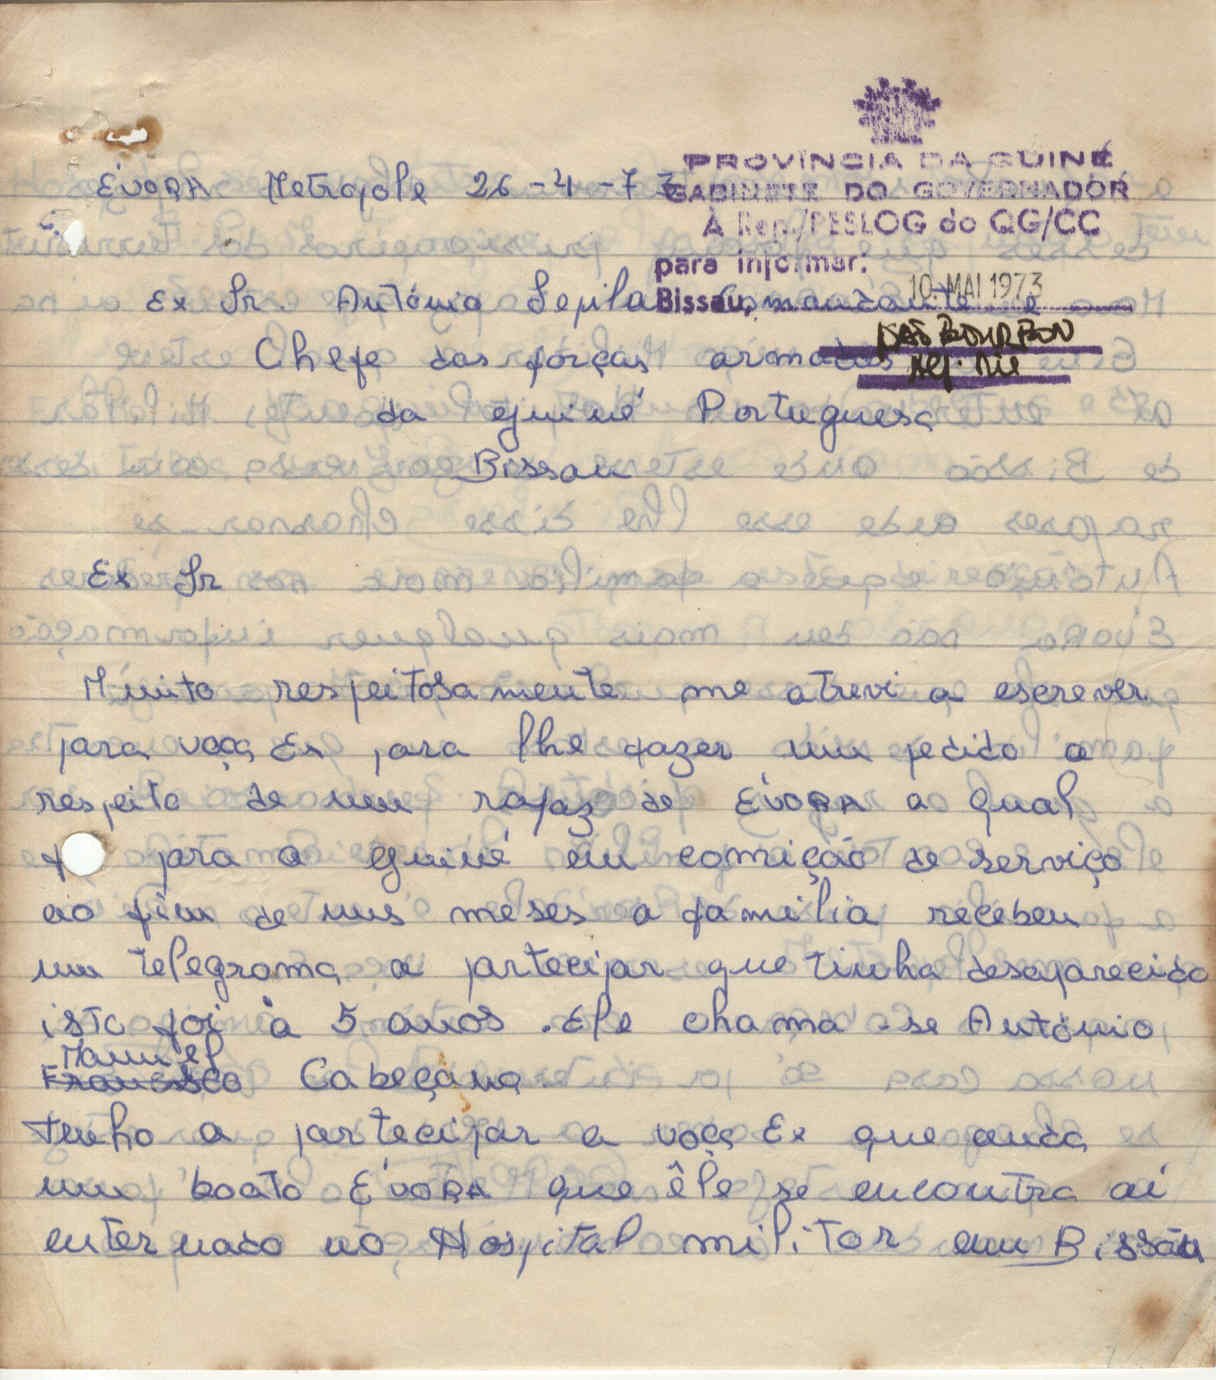 PROVINCIA DA GUINÉ
GABINETE DO GOVERNADOR
À Rep./PESLOG do QG/CC
para informar:
Bissau, 10. MAI 1973
ÉVORA Metropole 26-4-73
Ex Sr António Sepila Comandante e
Chefe das forças armadas
da guiné Portuguesa
Bissau
Ex Sr
Muito respeitosamente me atrevi a escrever
para voça Ex para lhe fazer um pedido a
respeito de um rapaz de ÉVORA a qual
para a guiné em comição de serviço
ao fim de uns meses a familia recebeu
um telegrama a partecipar que tinha desaparecido
isto foi à 5 anos. Ele chama-se António
Manuel
Francisco Cabeçana
tenho a partecipar a voça Ex que anda
um boato ÉVORA que êle se encontra aí
enternado no Hospital militar em Bissau